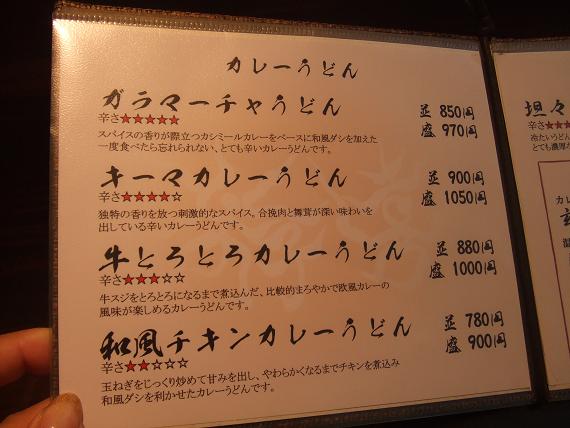 カレーうどん
ガラマーチャうどん
辛さ★★★★★
並 850円
盛 970円
スパイスの香りが際立つカシミールカレーをベースに和風ダシを加えた
一度食べたら忘れられない、とても辛いカレーうどんです。
キーマカレーうどん
辛さ★★★★☆
並 900円
盛 1050円
独特の香りを放つ刺激的なスパイス。合挽肉と舞茸が深い味わいを
出している辛いカレーうどんです。
牛とろとろカレーうどん
辛さ★★★☆☆
並 880円
盛 1000円
牛スジをとろとろになるまで煮込んだ、比較的まろやかで欧風カレーの
風味が楽しめるカレーうどんです。
和風チキンカレーうどん
辛さ★★☆☆☆
並 780円
盛 900円
玉ねぎをじっくり炒めて甘みを出し、やわらかくなるまでチキンを煮込み
和風ダシを利かせたカレーうどんです。
坦々
辛さ★★★
冷たいうどん
とても濃厚な